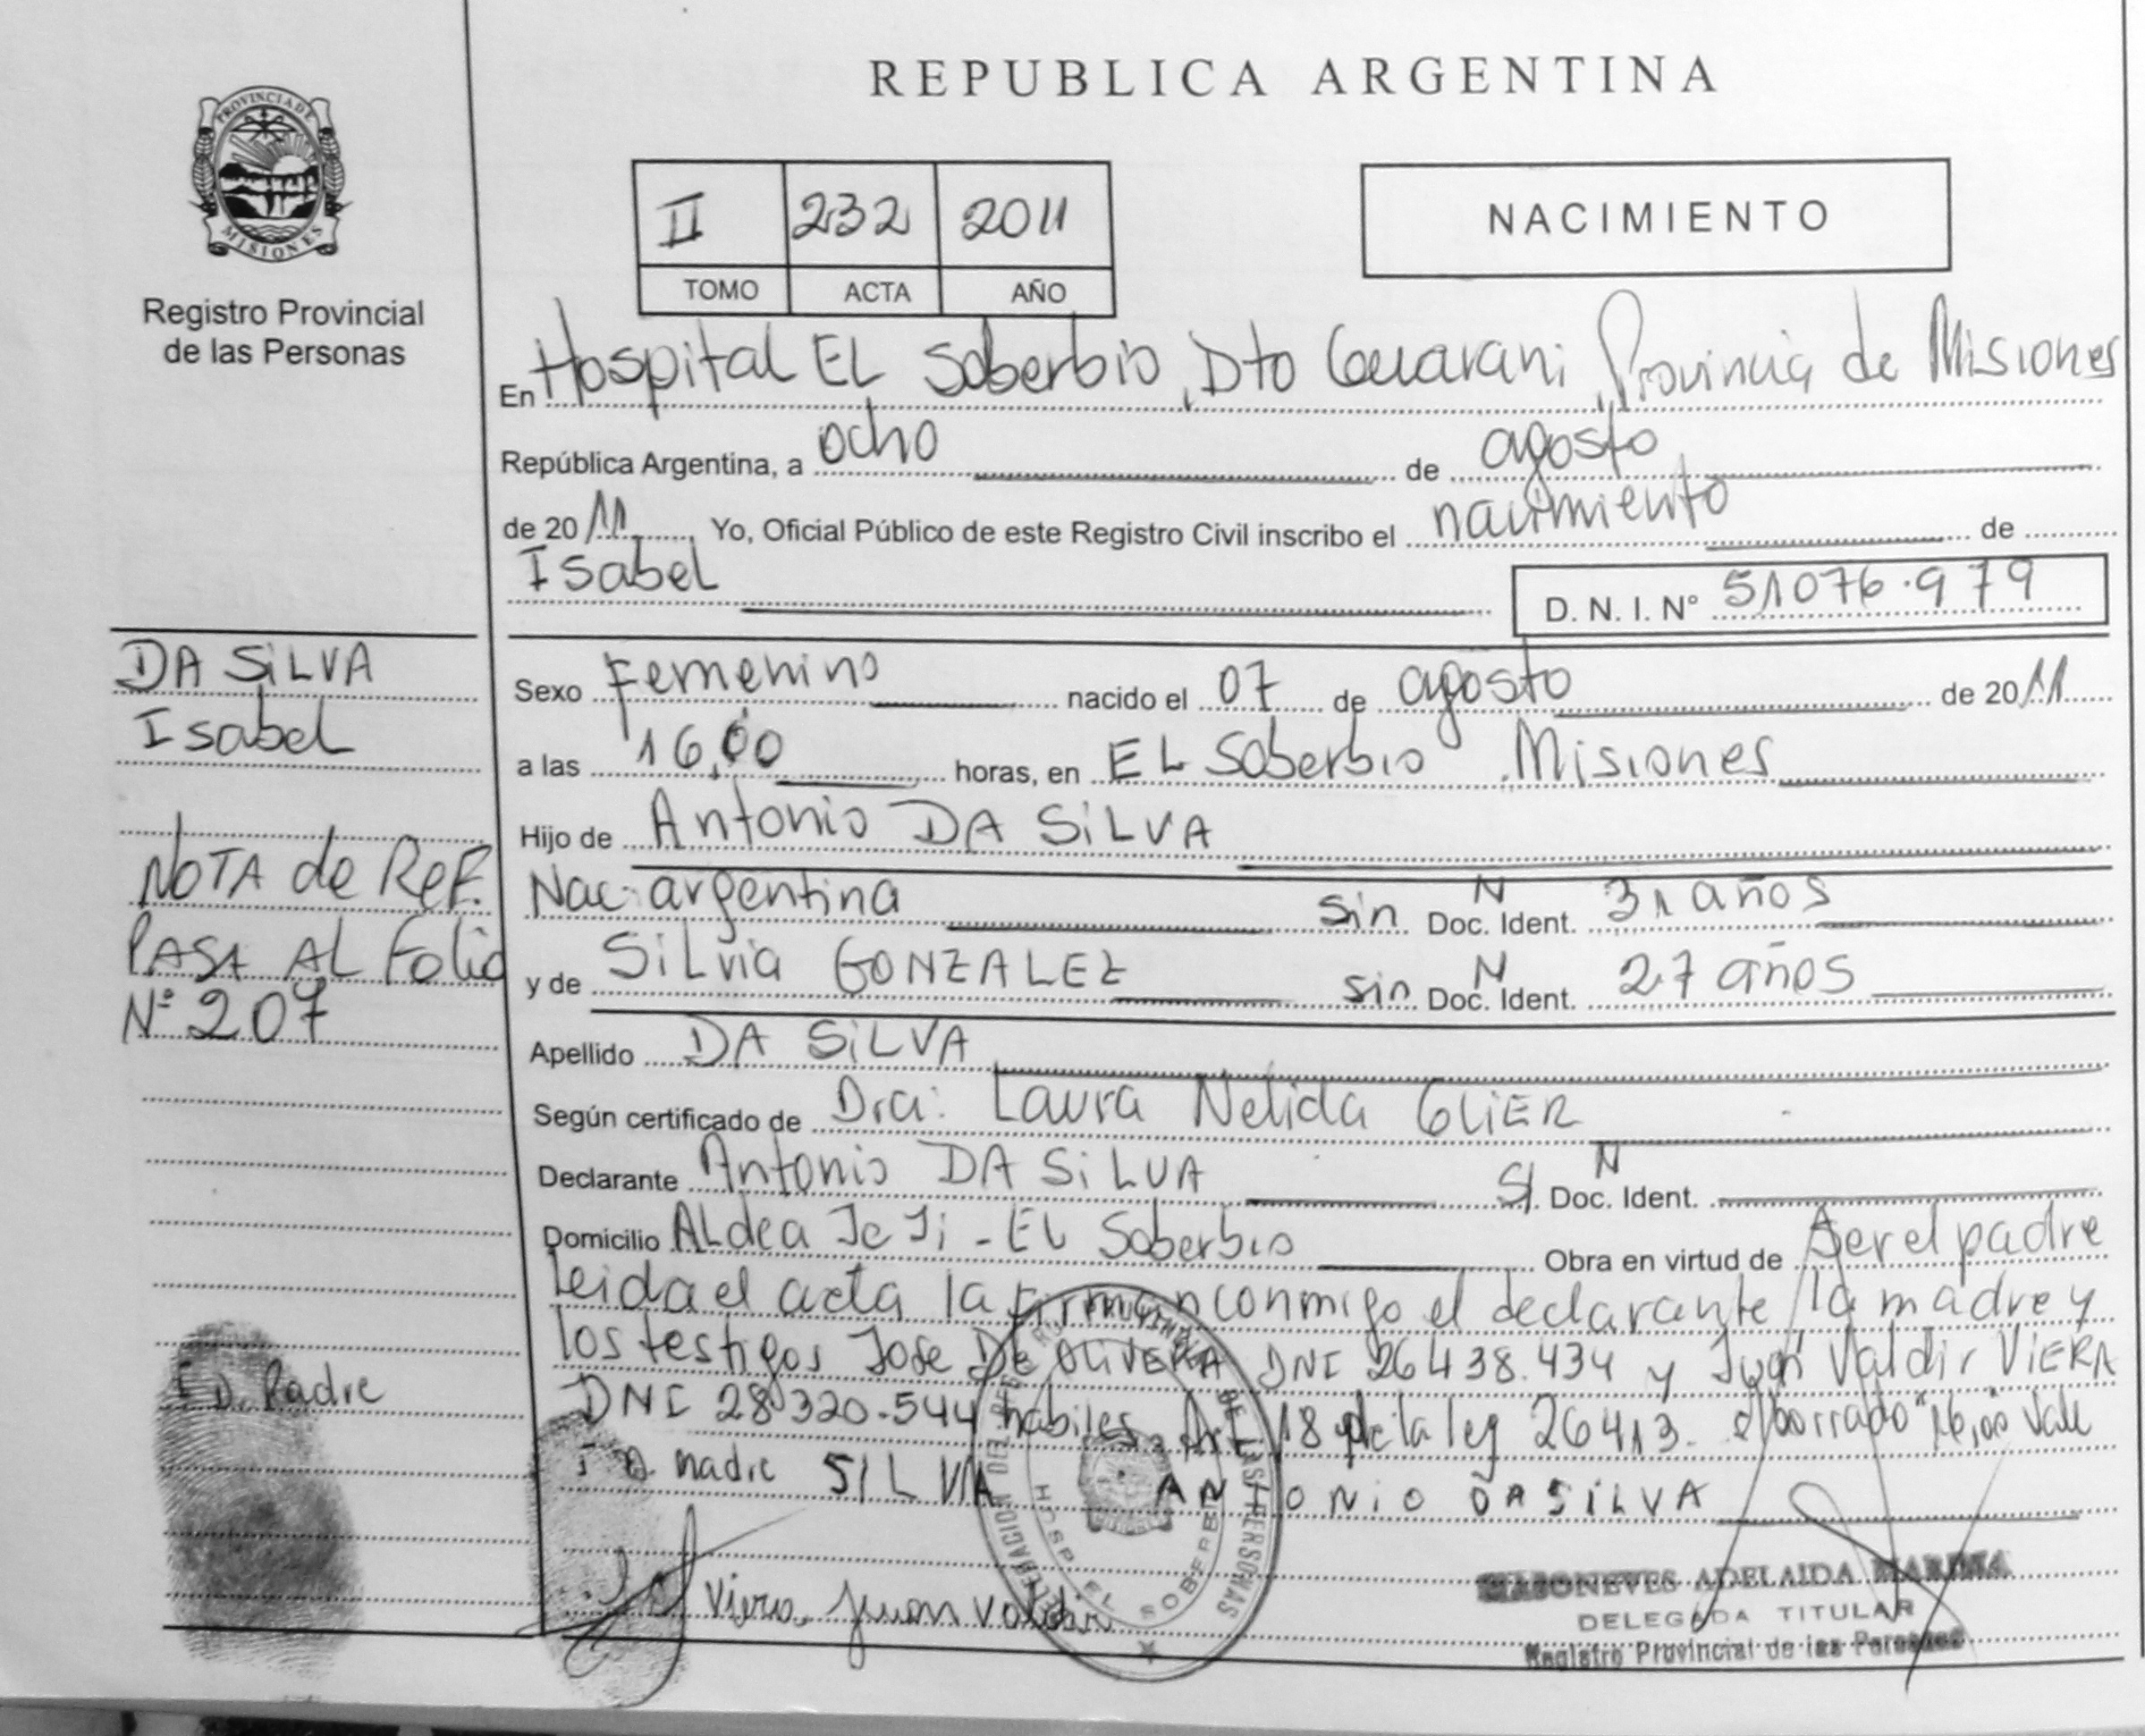 REPUBLICA ARGENTINA
PROVINCIA DE
MISIONES
Registro Provincial
de las Personas
II 232 2011
TOMO ACTA AÑO
NACIMIENTO
En Hospital EL Soberbio, Dto Guarani Provincia de Misiones
República Argentina, a ocho de agosto
de 2011 Yo, Oficial Público de este Registro Civil inscribo el nacimiento de
Isabel
D. N. I. Nº 51076.979
DA SiLVA
Isabel
NOTA de ReF.
PASA AL Folio
Nº 207
Sexo Femenino nacido el 07 de agosto de 2011
a las 16,00 horas, en EL Soberbio Misiones
Hijo de Antonio DA SiLVA
Nac. argentina sin N Doc. Ident. 31 años
y de SiLvia GONZALEZ sin N Doc. Ident. 27 años
Apellido DA SiLVA
Según certificado de Dra: Laura Nelida GLiER
Declarante Antonio DA SiLVA S/ N Doc. Ident.
Domicilio ALdea - EL Soberbio Obra en virtud de Ser el padre
Leida el acta la firman conmigo el declarante la madre y
los testigos Jose DE OLIVERA DNI 26438.434 y Juan Valdir ViERA
DNI 28320.544 habiles Art 18 de la ley 26413. el borrado "16,00" vale
I D. Padre
I D. madre SILVIA ANTONIO DA SILVA
Viera, Juan Valdir
HOSP. EL SOBERBIO
ADELAIDA
DELEGADA TITULAR
Registro Provincial de las Personas